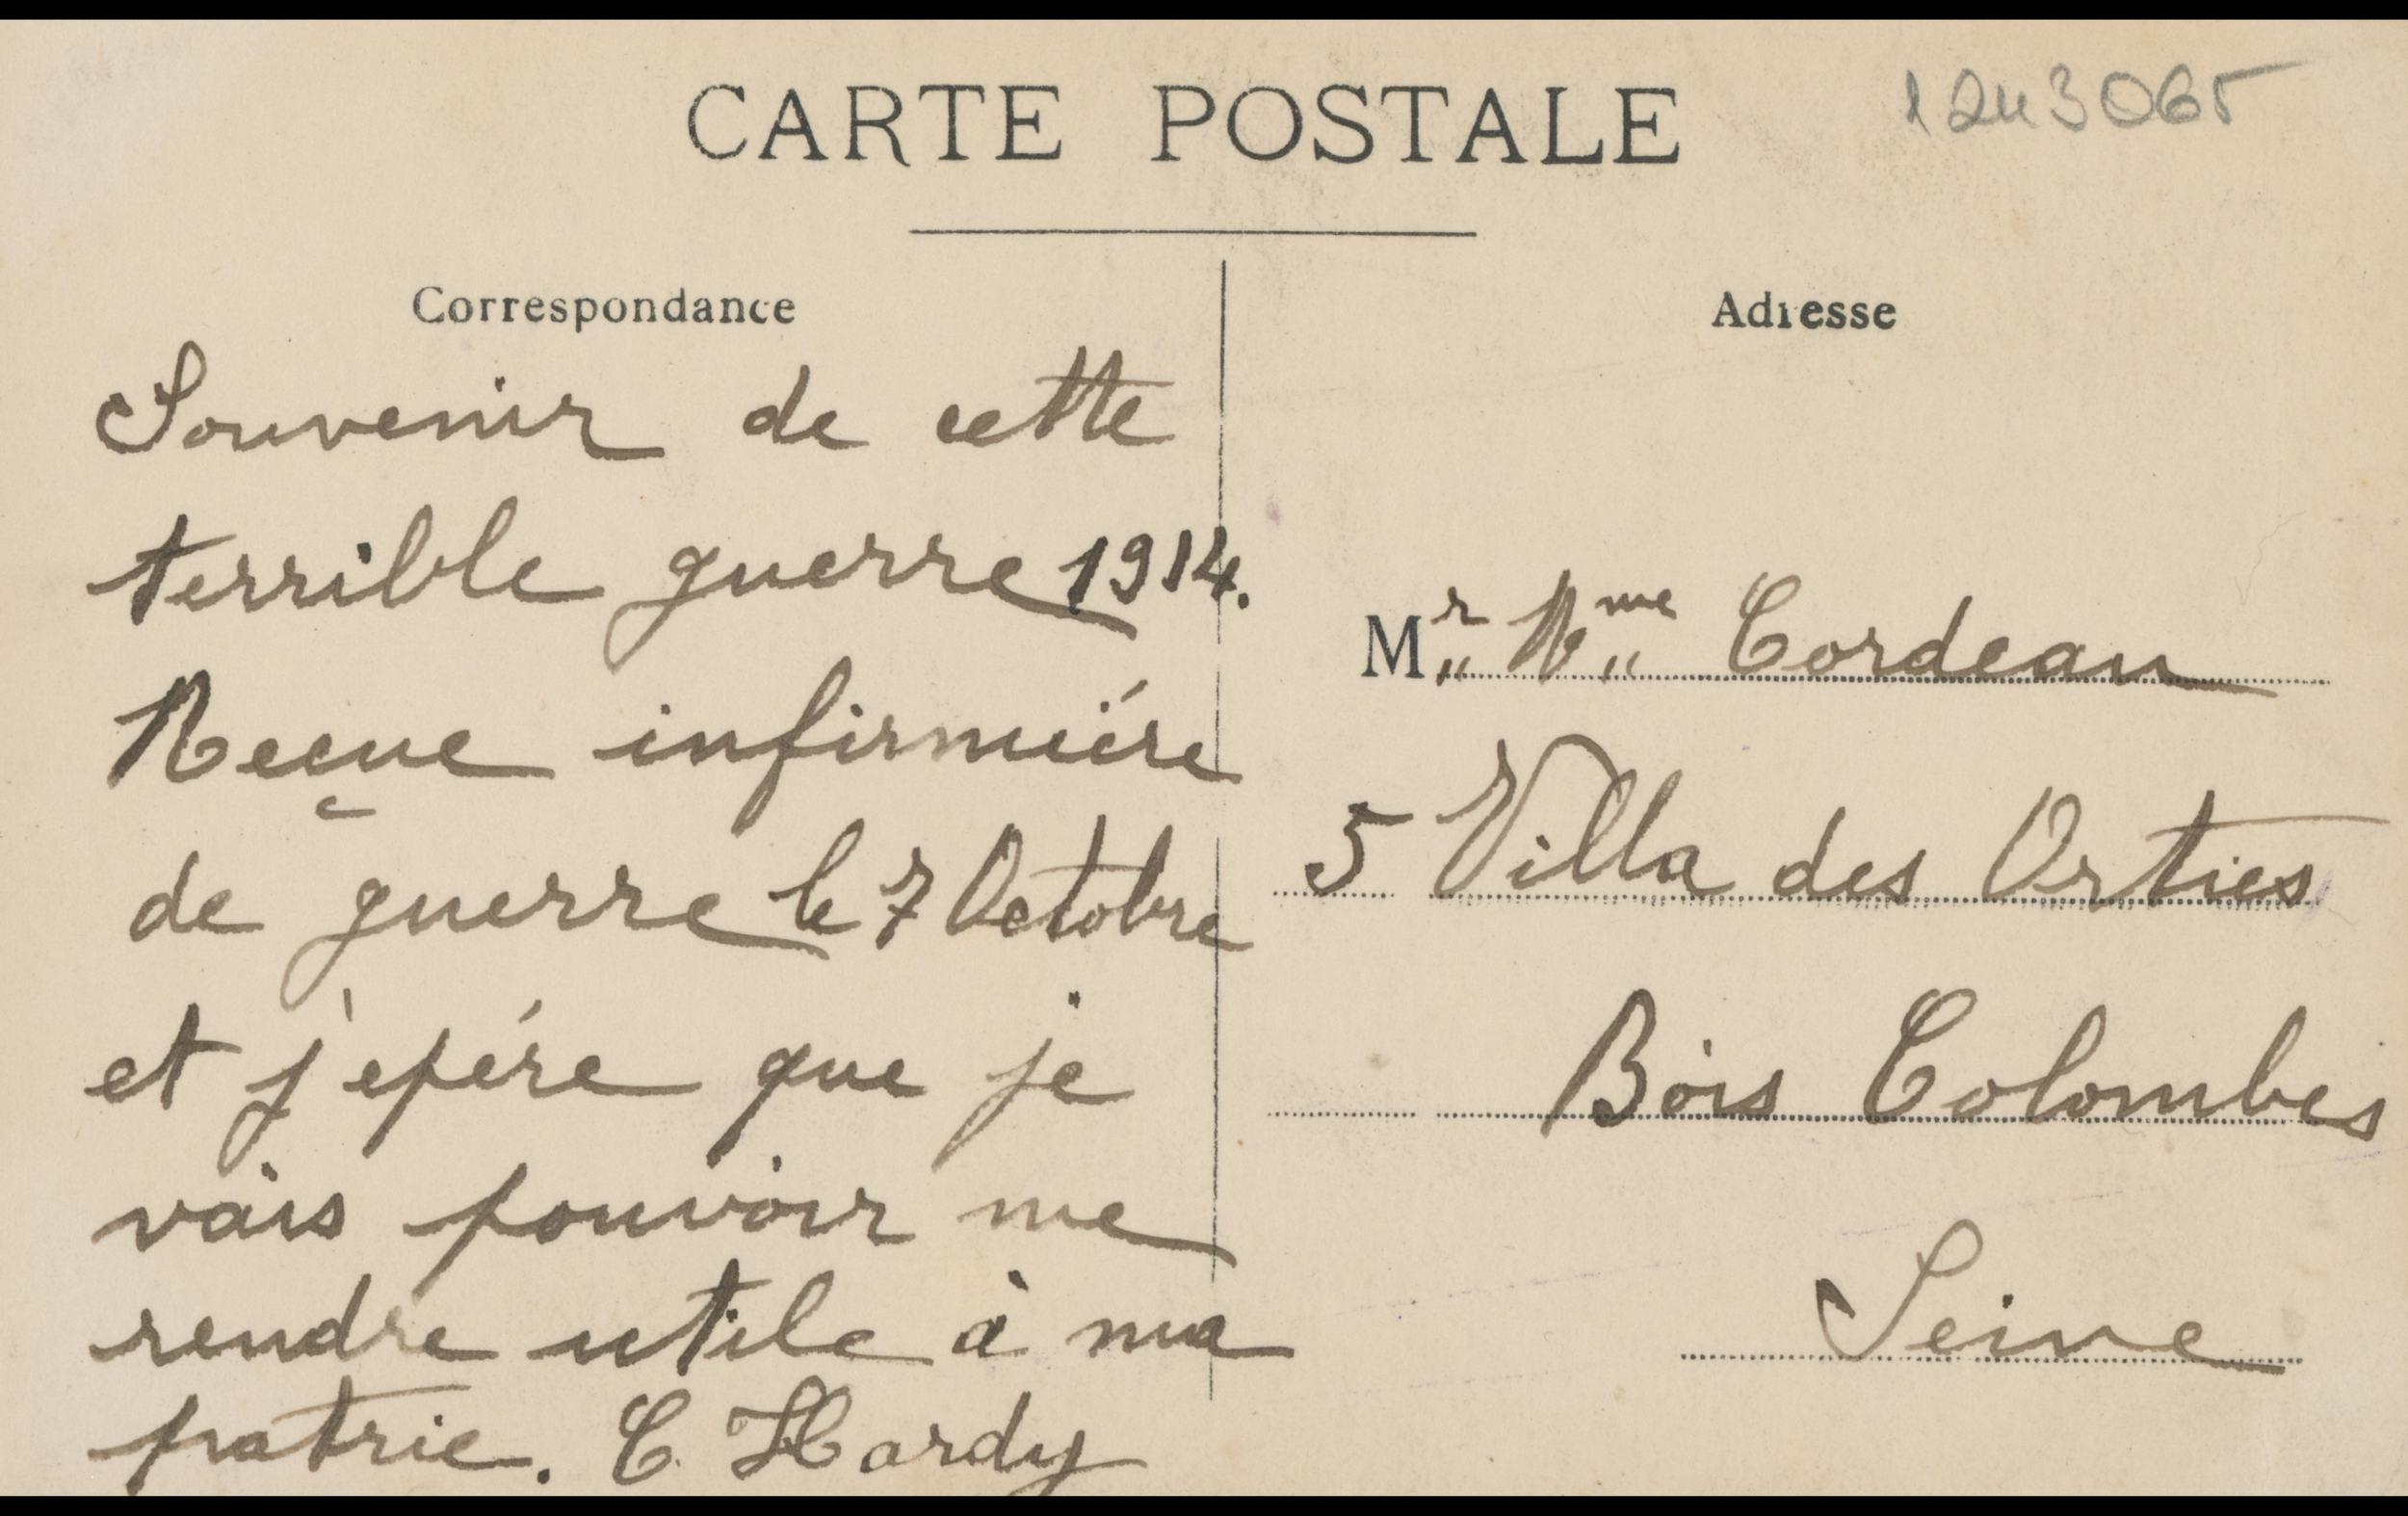 CARTE POSTALE
1243065
Correspondance
Souvenir de cette
terrible guerre 1914.
Reçue infirmiére
de guerre le 7 Octobre
et j'epére que je
vais pouvoir me
rendre utile à ma
patrie. C. Hardy
Adresse
Mr Mme Cordeau
5 Villa des Orties
Bois Colombes
Seine